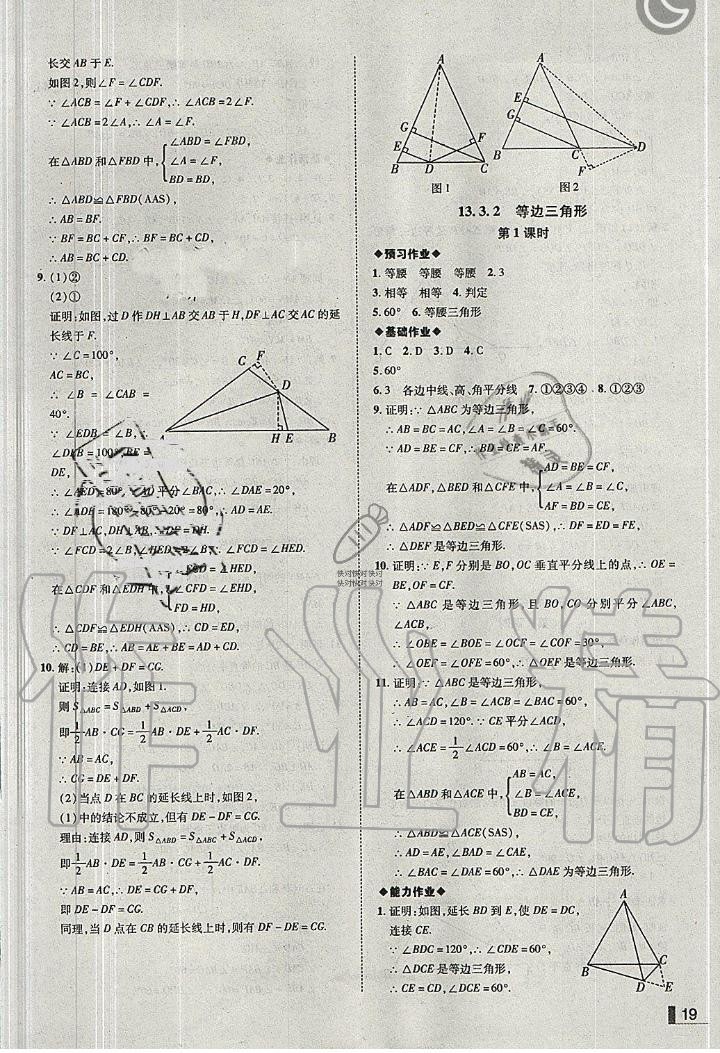 长交AB于E.
如图2,则∠F=∠CDF.
∵∠ACB=∠F+∠CDF,∴∠ACB=2∠F.
∵∠ACB=2∠A,∴∠A=∠F.
在△ABD和△FBD中,{∠ABD=∠FBD,
∠A=∠F,
BD=BD,
∴△ABD≌△FBD(AAS),
∴AB=BF.
∵BF=BC+CF,∴BF=BC+CD,
∴AB=BC+CD.
9.(1)②
(2)①
证明:如图,过D作DH⊥AB交AB于H,DF⊥AC交AC的延
长线于F.
∵∠C=100°,
AC=BC,
∴∠B=∠CAB=
40°.
∵∠EDB=∠B,
∠DEB=100°,BE=
DE,
∴∠AED=80°,∵AD平分∠BAC,∴∠DAE=20°,
∴∠ADE=180°-80°-20°=80°,∴AD=AE.
∵DF⊥AC,DH⊥AB,∴DF=DH.
∵∠FCD=2∠B,∠HED=2∠B,∴∠FCD=∠HED.
在△CDF和△EDH中,{∠F=∠DHE,
∠FCD=∠HED,
FD=HD,
∴△CDF≌△EDH(AAS),∴CD=ED,
∴CD=BE,∴AB=AE+BE=AD+CD.
10.解:(1)DE+DF=CG.
证明:连接AD,如图1.
则S△ABC=S△ABD+S△ACD,
即1/2AB·CG=1/2AB·DE+1/2AC·DF.
∵AB=AC,
∴CG=DE+DF.
(2)当点D在BC的延长线上时,如图2,
(1)中的结论不成立,但有DE-DF=CG.
理由:连接AD,则S△ABD=S△ABC+S△ACD,
即1/2AB·DE=1/2AB·CG+1/2AC·DF.
∵AB=AC,∴DE=CG+DF,
即DE-DF=CG.
同理,当点D在CB的延长线上时,则有DF-DE=CG.
A
G
E
F
B
D
C
图1
A
E
G
B
C
D
F
图2
C
F
D
A
H
E
B
13.3.2 等边三角形
第1课时
◆预习作业◆
1.等腰 等腰 等腰 2.3
3.相等 相等 4.判定
5.60° 6.等腰三角形
◆基础作业◆
1.C 2.D 3.D 4.C
5.60°
6.3 各边中线、高、角平分线 7.①②③④ 8.①②③
9.证明:∵△ABC为等边三角形,
∴AB=BC=AC,∠A=∠B=∠C=60°.
∵AD=BE=CF,∴BD=CE=AF.
在△ADF,△BED和△CFE中,{AD=BE=CF,
∠A=∠B=∠C,
AF=BD=CE,
∴△ADF≌△BED≌△CFE(SAS),∴DF=ED=FE.
∴△DEF是等边三角形.
10.证明:∵E,F分别是BO,OC垂直平分线上的点,∴OE=
BE,OF=CF.
∵△ABC是等边三角形,且BO,CO分别平分∠ABC,
∠ACB,
∴∠OBE=∠BOE=∠OCF=∠COF=30°,
∴∠OEF=∠OFE=60°,∴△OEF是等边三角形.
11.证明,∵△ABC是等边三角形,
∴AB=AC,∠ABC=∠BAC=∠BCA=60°,
∴∠ACD=120°.∵CE平分∠ACD,
∴∠ACE=1/2∠ACD=60°,∴∠B=∠ACE.
在△ABD和△ACE中,{AB=AC,
∠B=∠ACE,
BD=CE,
∴△ABD≌△ACE(SAS),
∴AD=AE,∠BAD=∠CAE,
∴∠BAC=∠DAE=60°,∴△DAE为等边三角形.
◆能力作业◆
1.证明:如图,延长BD到E,使DE=DC,
连接CE.
∵∠BDC=120°,∴∠CDE=60°,
∴△DCE是等边三角形,
∴CE=CD,∠DCE=60°,
A
B
C
D
E
快对快对快对
快对快对快对
作业精
19